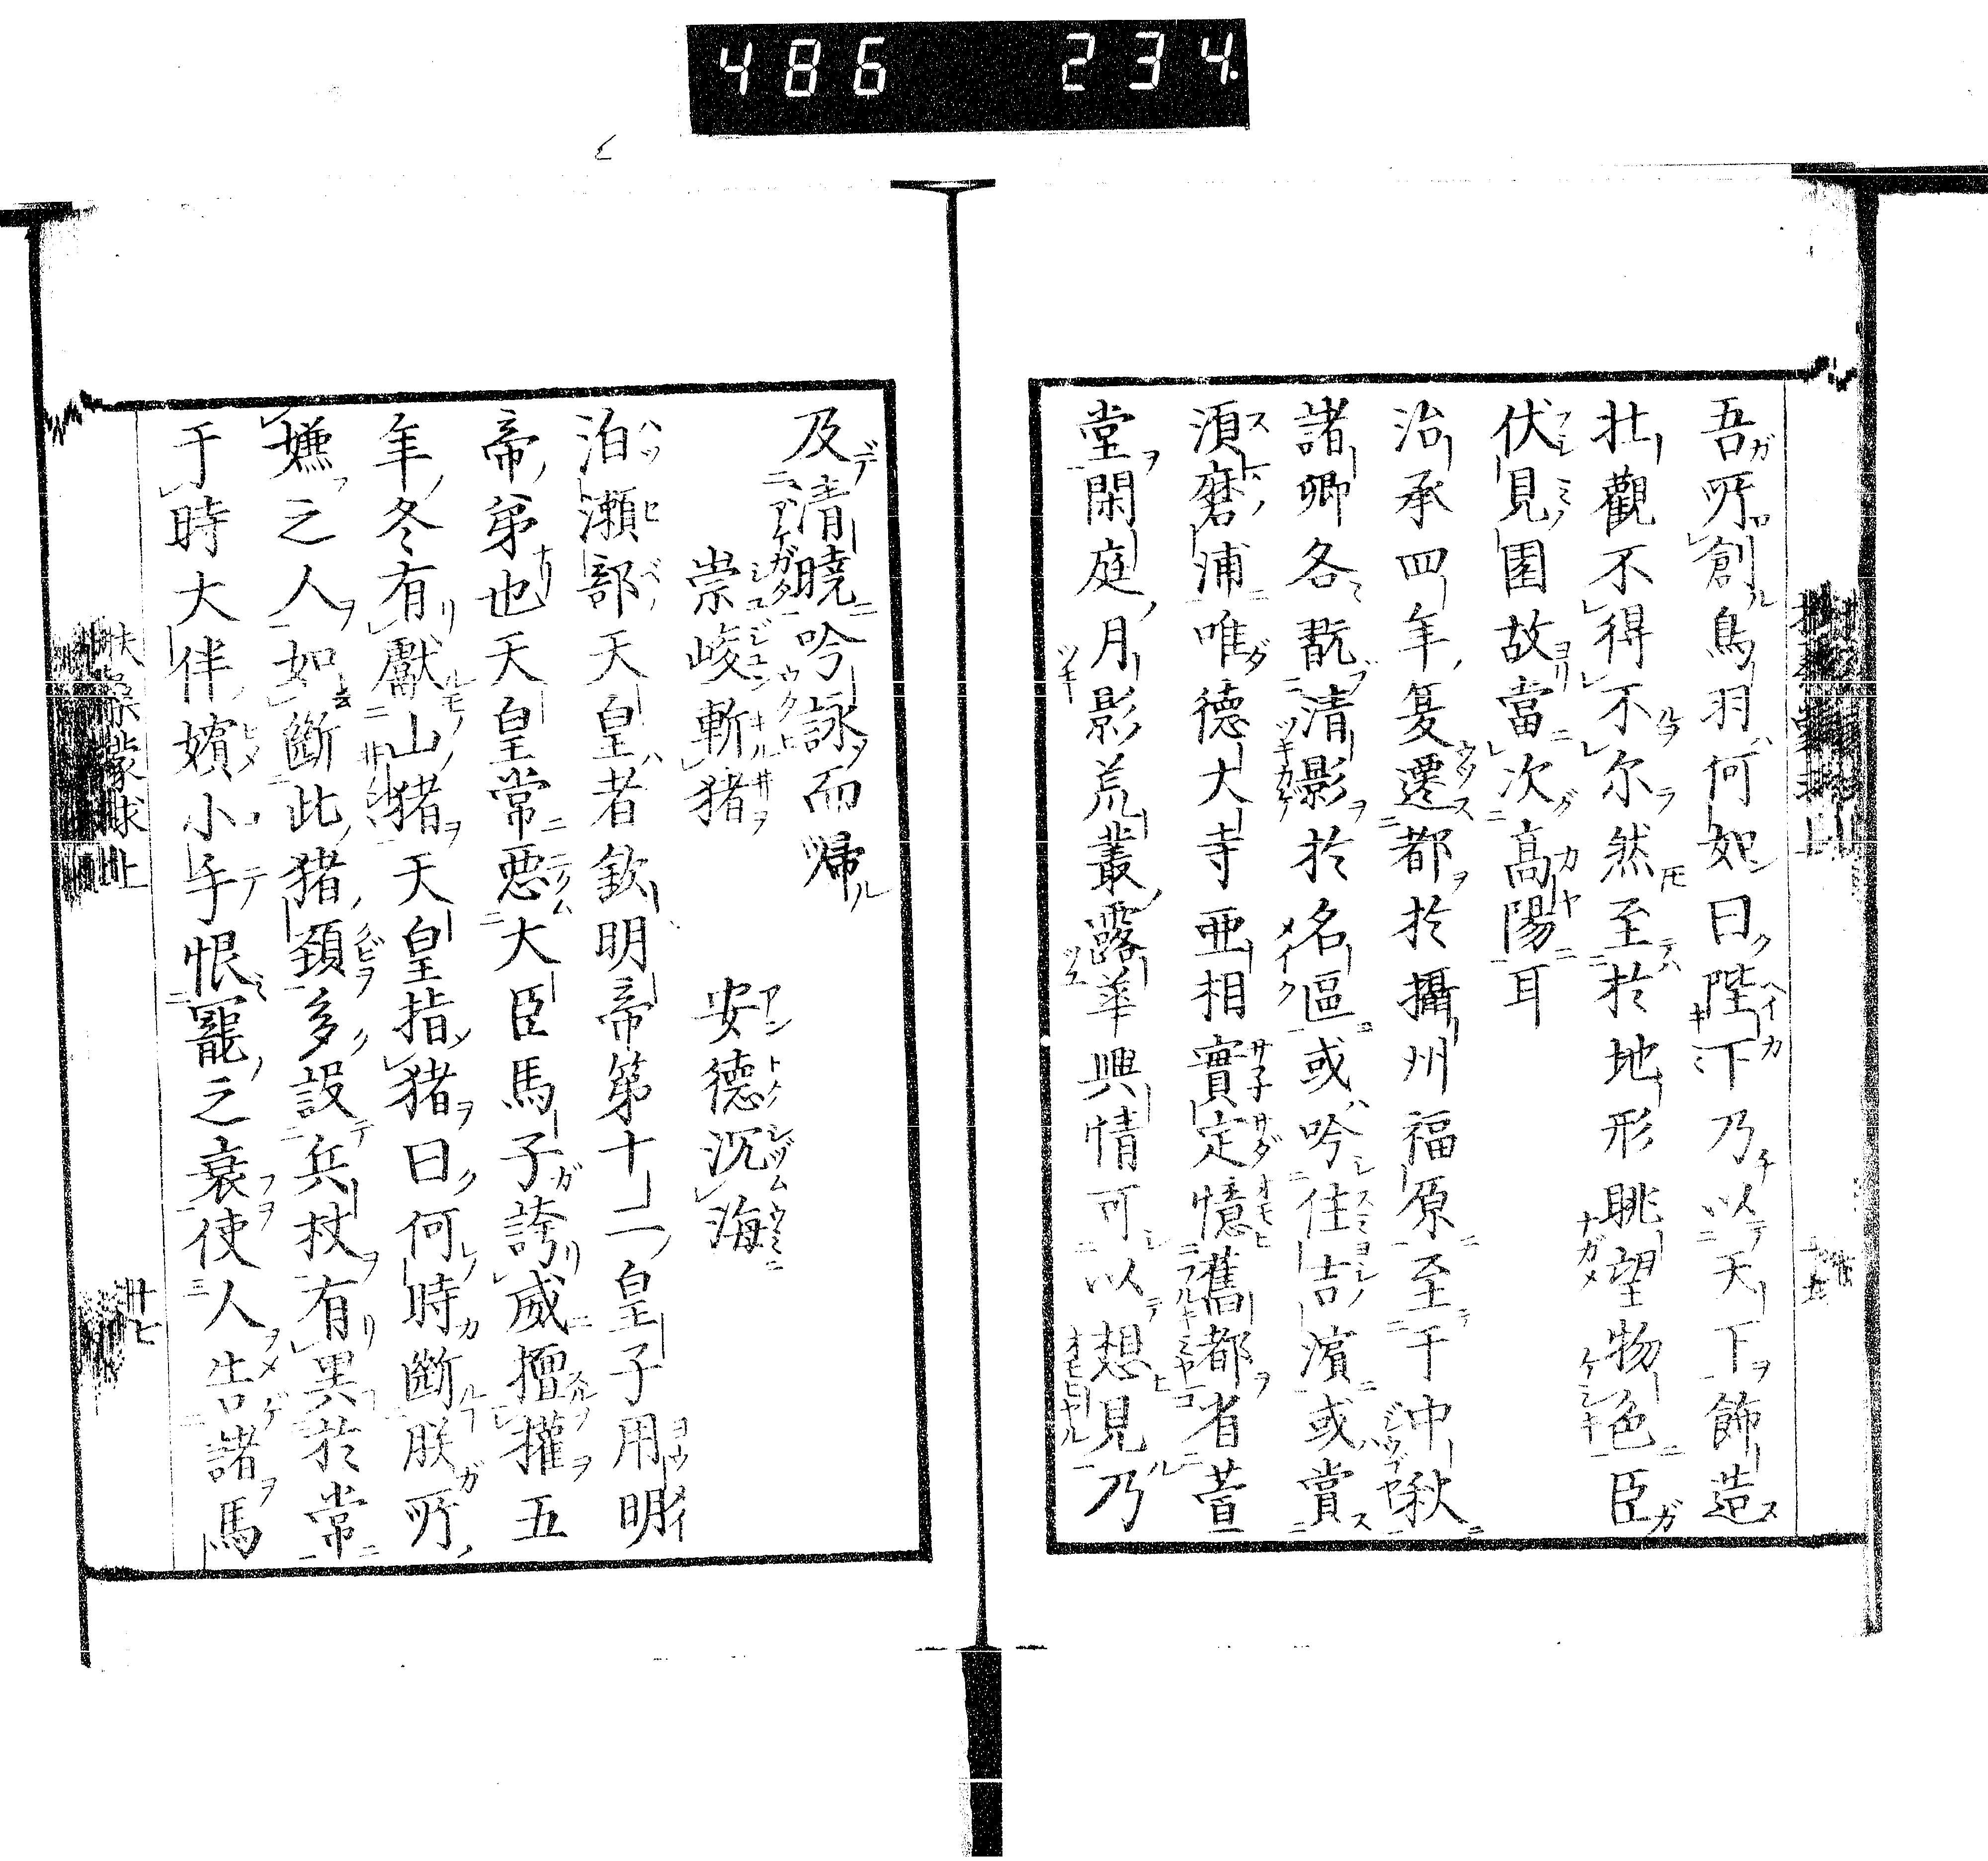 486 234.
吾所創鳥羽何如曰陛下乃以天下飾造
壮觀不得不尓然至於地形眺望物色臣
伏見園故當次高陽耳
治承四年夏遷都於攝州福原至于沖秋
諸卿各翫清影於名區或吟住吉濱或賞
須磨浦唯德大寺亜相實定憶舊都省萱
堂閑庭月影荒叢露華興情可以想見乃
及清曉吟詠而歸
崇峻斬猪 安德沉海
泊瀬部天皇者欽明帝第十二皇子用明
帝弟也天皇常惡大臣馬子誇威擅權五
年冬有獻山猪天皇指猪曰何時斷朕所
嫌之人如斷此猪頚多設兵杖有異於常
于時大伴嬪小手恨寵之衰使人告諸馬
扶桑蒙求上 廿七